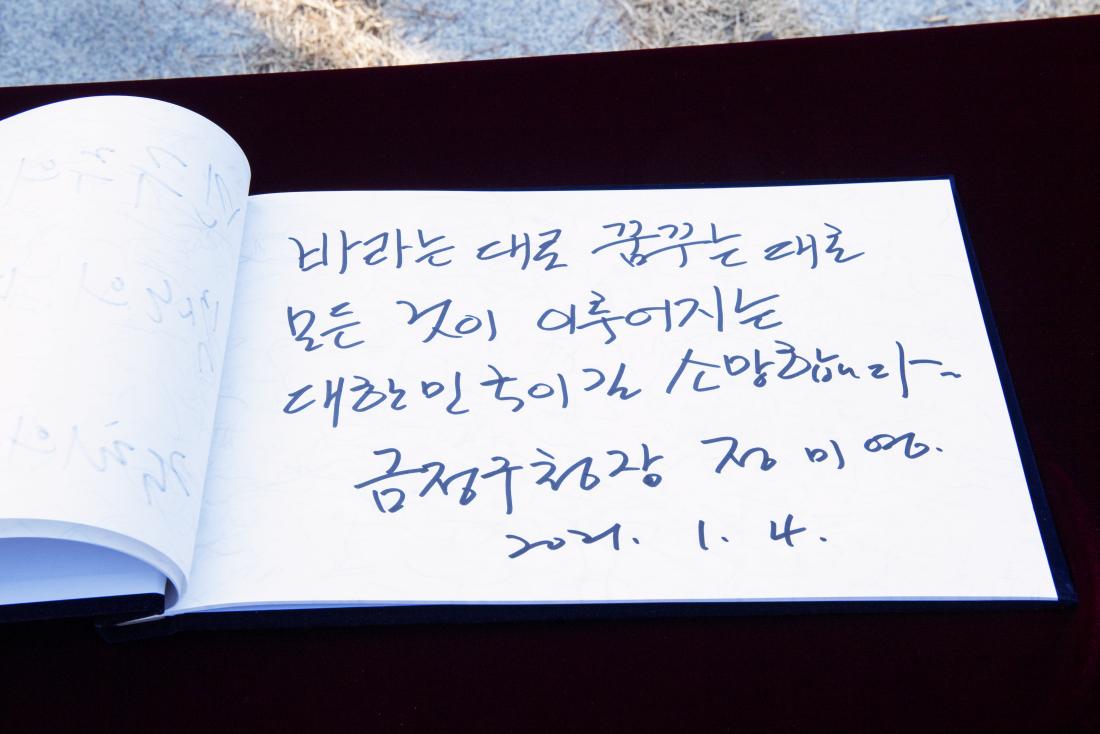 바라는 대로 꿈꾸는 대로
모든 것이 이루어지는
대한민국이길 소망합니다~
금정구청장 정미영.
2021. 1. 4.